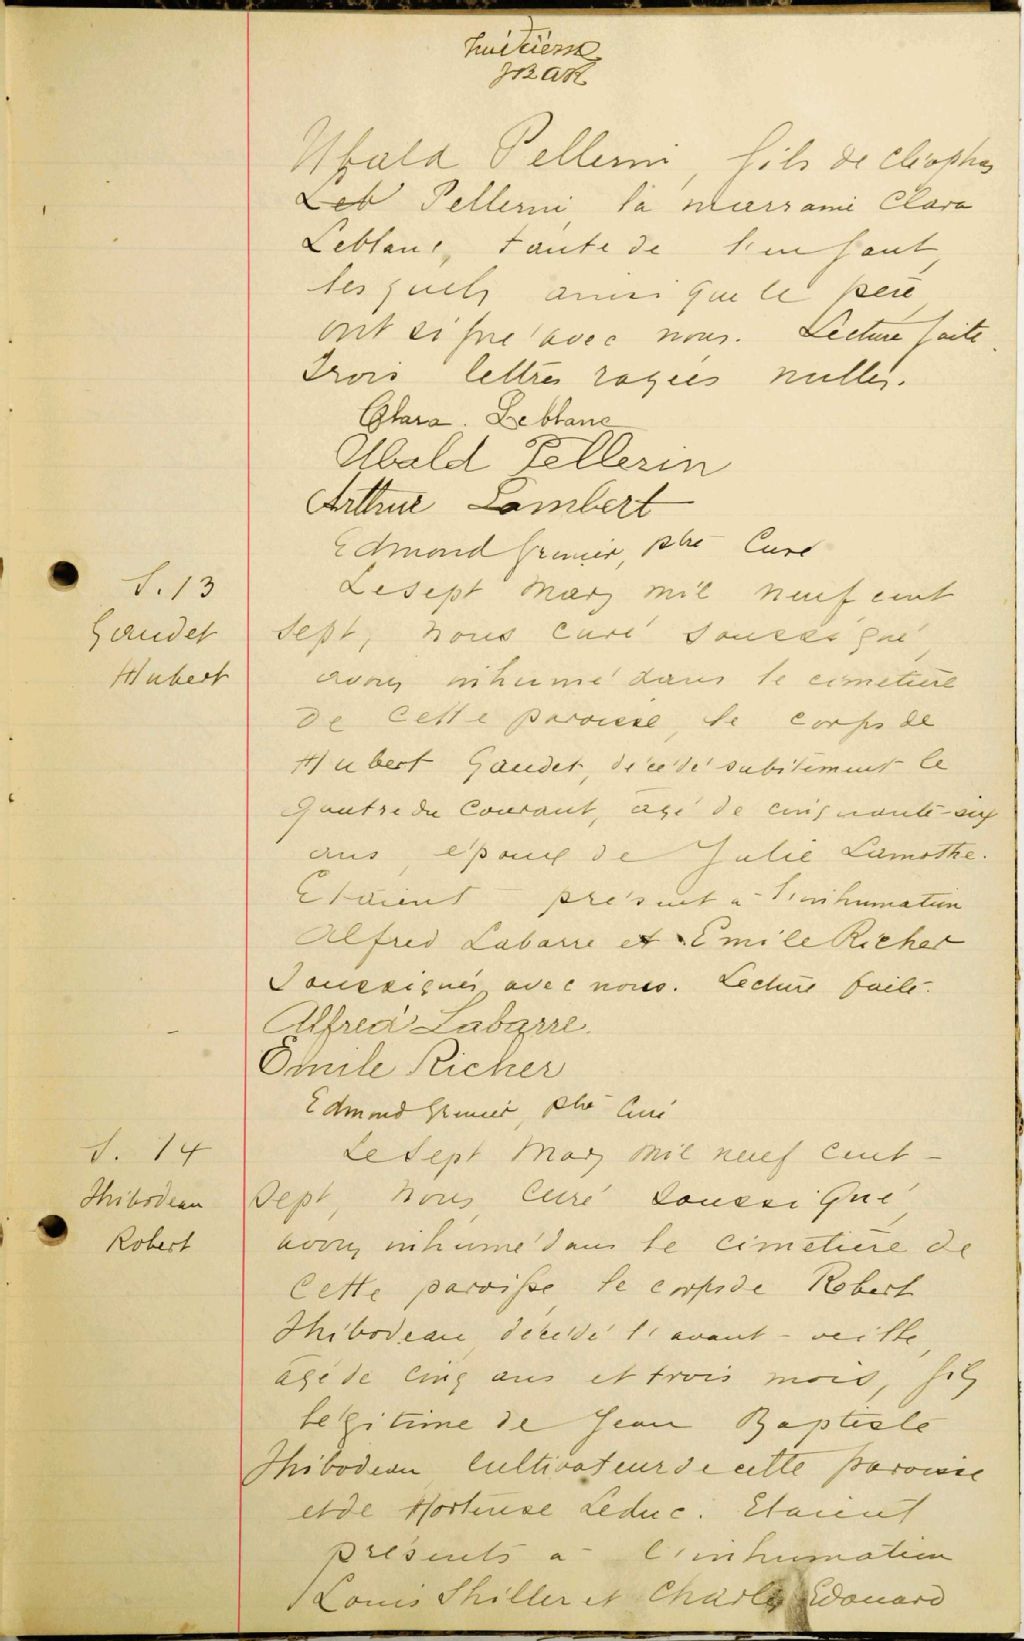 huitième
Ubald Pellerin, fils de Cléophas
Leb Pellerin, la marraine Clara
Leblanc, tante de l'enfant,
lesquels ainsi que le père,
ont signé avec nous. Lecture faite.
Trois lettres rayées nulles.
Clara. Leblanc
Ubald Pellerin
Arthur Lambert
Edmond Grenier, ptre Curé
S. 13
Gaudet
Hubert
Le sept Mars mil neuf cent
sept, nous curé soussigné,
avons inhumé dans le cimetière
de cette paroisse, le corps de
Hubert Gaudet, décédé subitement le
quatre du courant, âgé de cinquante-six
ans, époux de Julie Lamothe.
Etaient présent à l'inhumation
Alfred Labarre et Emile Richer
soussignés avec nous. Lecture faite.
Alfred Labarre.
Emile Richer
Edmond Grenier, ptre Curé
S. 14
Thibodeau
Robert
Le sept Mars mil neuf cent-
sept, nous, curé soussigné,
avons inhumé dans le cimetière de
cette paroisse, le corps de Robert
Thibodeau, décédé l'avant-veille,
âgé de cinq ans et trois mois, fils
légitime de Jean Baptiste
Thibodeau cultivateur de cette paroisse
et de Hortense Leduc. Etaient
présents à l'inhumation
Louis Shiller et Charles Edouard